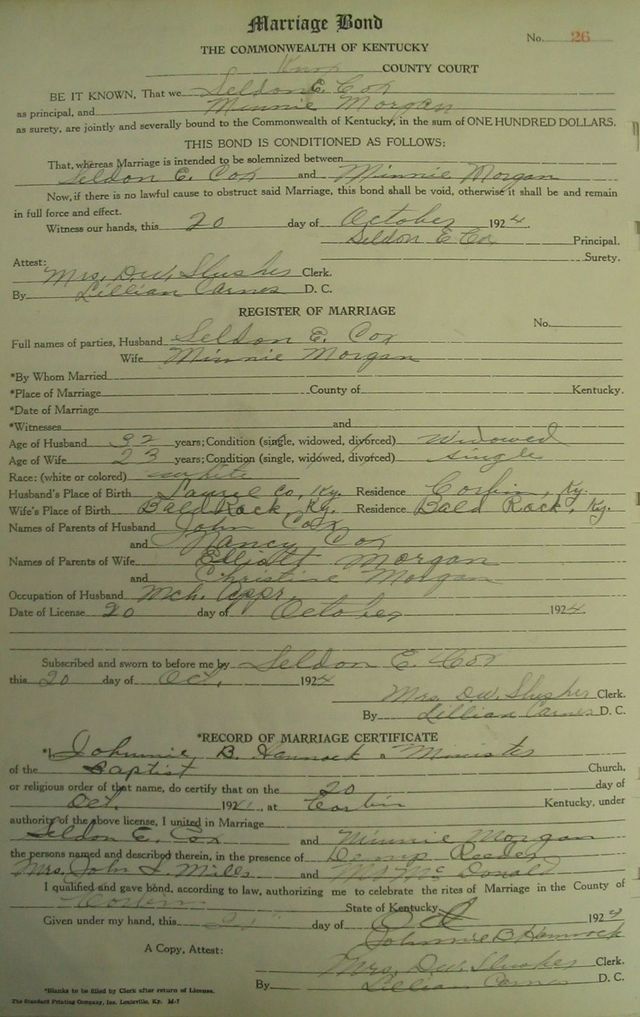 Marriage Bond
No. 26
THE COMMONWEALTH OF KENTUCKY
Knox COUNTY COURT
BE IT KNOWN, That we Seldon E. Cox
as principal, and Minnie Morgan
as surety, are jointly and severally bound to the Commonwealth of Kentucky, in the sum of ONE HUNDRED DOLLARS.
THIS BOND IS CONDITIONED AS FOLLOWS:
That, whereas Marriage is intended to be solemnized between
Seldon E. Cox and Minnie Morgan
Now, if there is no lawful cause to obstruct said Marriage, this bond shall be void, otherwise it shall be and remain
in full force and effect.
Witness our hands, this 20 day of October 1924
Seldon E Cox Principal.
Surety.
Attest:
Mrs. D.W. Slusher Clerk.
By Lillian Carnes D. C.
REGISTER OF MARRIAGE
No.
Full names of parties, Husband Seldon E. Cox
Wife Minnie Morgan
*By Whom Married
*Place of Marriage County of Kentucky.
*Date of Marriage
*Witnesses and
Age of Husband 32 years; Condition (single, widowed, divorced) Widowed
Age of Wife 23 years; Condition (single, widowed, divorced) Single
Race: (white or colored) white
Husband's Place of Birth Laurel Co, Ky. Residence Corbin, Ky.
Wife's Place of Birth Bald Rock, Ky. Residence Bald Rock, Ky.
Names of Parents of Husband John Cox
and Nancy Cox
Names of Parents of Wife Elliott Morgan
and Christine Morgan
Occupation of Husband Mch. Appr.
Date of License 20 day of October 1924
Subscribed and sworn to before me by Seldon E. Cox
this 20 day of Oct. 1924
Mrs. D.W. Slusher Clerk.
By Lillian Carnes D. C.
*RECORD OF MARRIAGE CERTIFICATE
*I, Johnnie B. Hammock a Minister
of the Baptist Church,
or religious order of that name, do certify that on the 20 day of
Oct. 192 at Corbin Kentucky, under
authority of the above license, I united in Marriage
Seldon E. Cox and Minnie Morgan
the persons named and described therein, in the presence of Reeder
Mrs. John Mills and McDonald
I qualified and gave bond, according to law, authorizing me to celebrate the rites of Marriage in the County of
Corbin State of Kentucky.
Given under my hand, this day of Oct 1924
Johnnie B Hammock
A Copy, Attest:
Mrs. D.W. Slusher Clerk.
By Lillian Carnes D. C.
*Blanks to be filled by Clerk after return of License.
The Standard Printing Company, Inc. Louisville, Ky. M-7